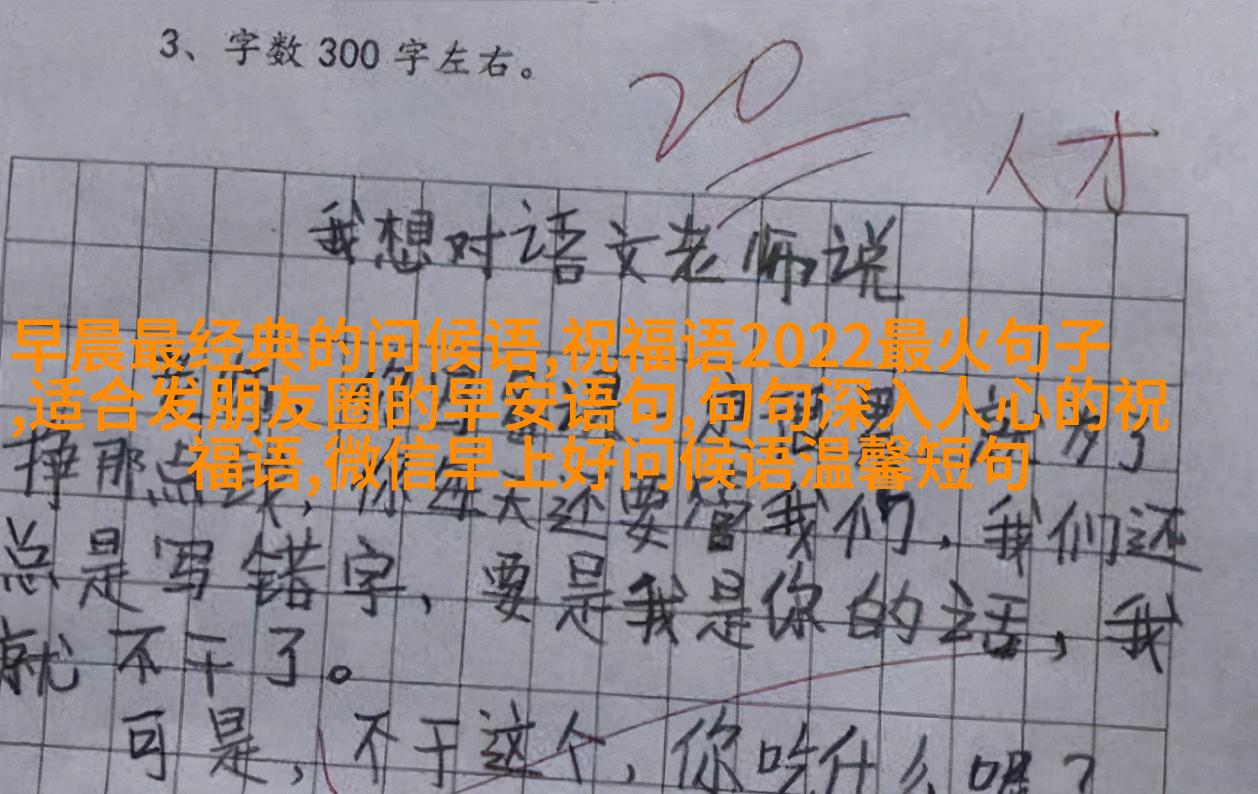 3、字数300字左右。
20
人才
我想对语文老师说
早晨最经典的问候语,祝福语2022最火句子
,适合发朋友圈的早安语句,句句深入人心的祝
福语,微信早上好问候语温馨短句
挣那点,你每天还要管我们,我们还
总是写错字,要是我是你的话,我
就不干了。
可是,不干这个,你吃什么呢?